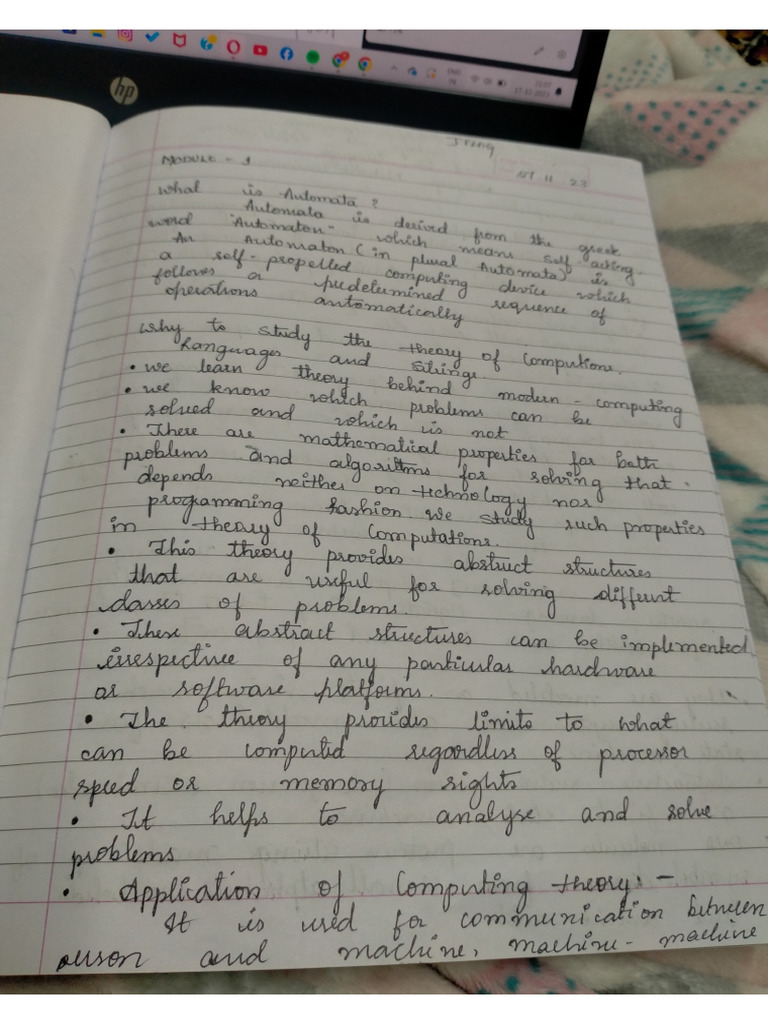 hp
MODULE - 1
11 23
What is Automata ?
Automata is derived from the greek
word "Automaton" which means self acting.
An Automaton (in plural Automata) is
a self-propelled computing device which
follows a predetermined sequence of
operations automatically
Why to study the theory of Computions.
Languages and Strings
• we learn theory behind modern - computing
• we know which problems can be
solved and which is not
• There are mathematical properties for both
problems and algorithms for solving that
depends neither on technology nor
programming fashion we study such properties
in theory of Computations.
• This theory provides abstruct structures
that are useful for solving different
classes of problems.
• These abstract structures can be implemented
irrespective of any particular hardware
or software platforms.
• The theory provides limits to what
can be computed regardless of processor
speed or memory rights
• It helps to analyse and solve
problems
• Application of Computing theory :-
It is used for communication between
and machine, machine - machine